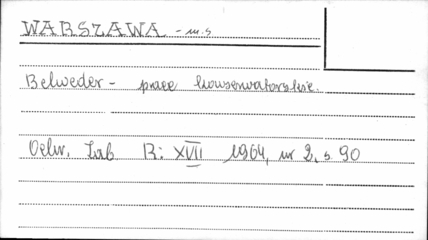 WARSZAWA - m.s
Belweder - prace konserwatorskie.
Ochr. Zab R: XVII 1964, nr 2, s. 90